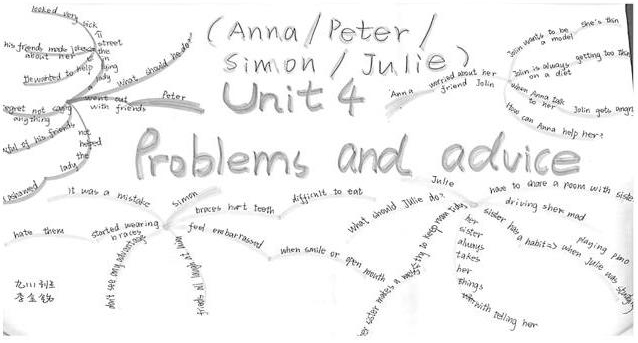 (Anna/Peter/
Simon/Julie)
Unit 4
Problems and advice
looked very sick
his friends made jokes
about her
He wanted to help
what should he do
went out
with friends
Peter
regret not
anything
of his friends
not
helped
the
lady
street
lying
lady
Anna
worried about her
friend Jolin
Jolin wants to be
a model
She's thin
Jolin is always
on a diet
getting too thin
when Anna talk
to her
Jolin gets angry
How can Anna help her?
Simon
it was a mistake
started wearing
braces
hate them
braces hurt teeth
difficult to eat
feel embarrassed
when smile or open mouth
friends
at him
Julie
what should Julie do?
have to share a room with sister
driving her mad
sister has a habit => when Julie was
playing piano
her
sister
always
takes
her
things
telling her
her sister makes a mess
try to keep room tidy